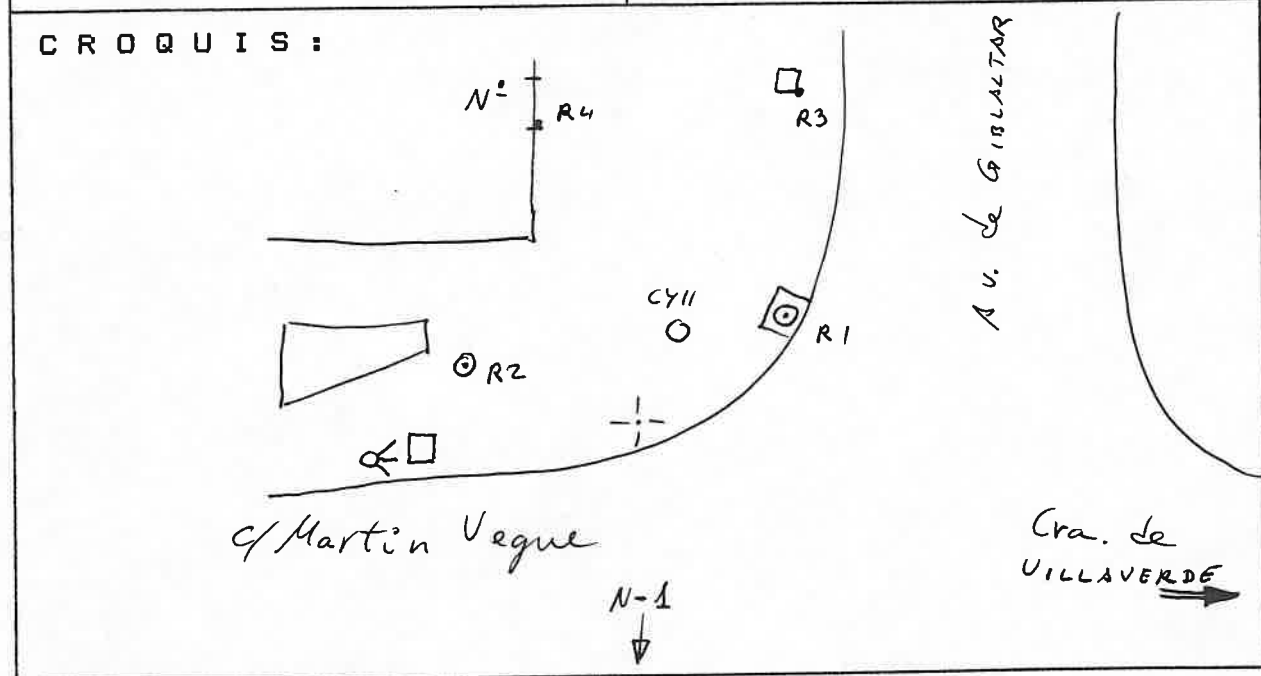 CROQUIS:
Nº
R4
R3
Av. de GIBLALTAR
CYII
R1
R2
c/ Martin Vegue
Cra. de
VILLAVERDE
N-1